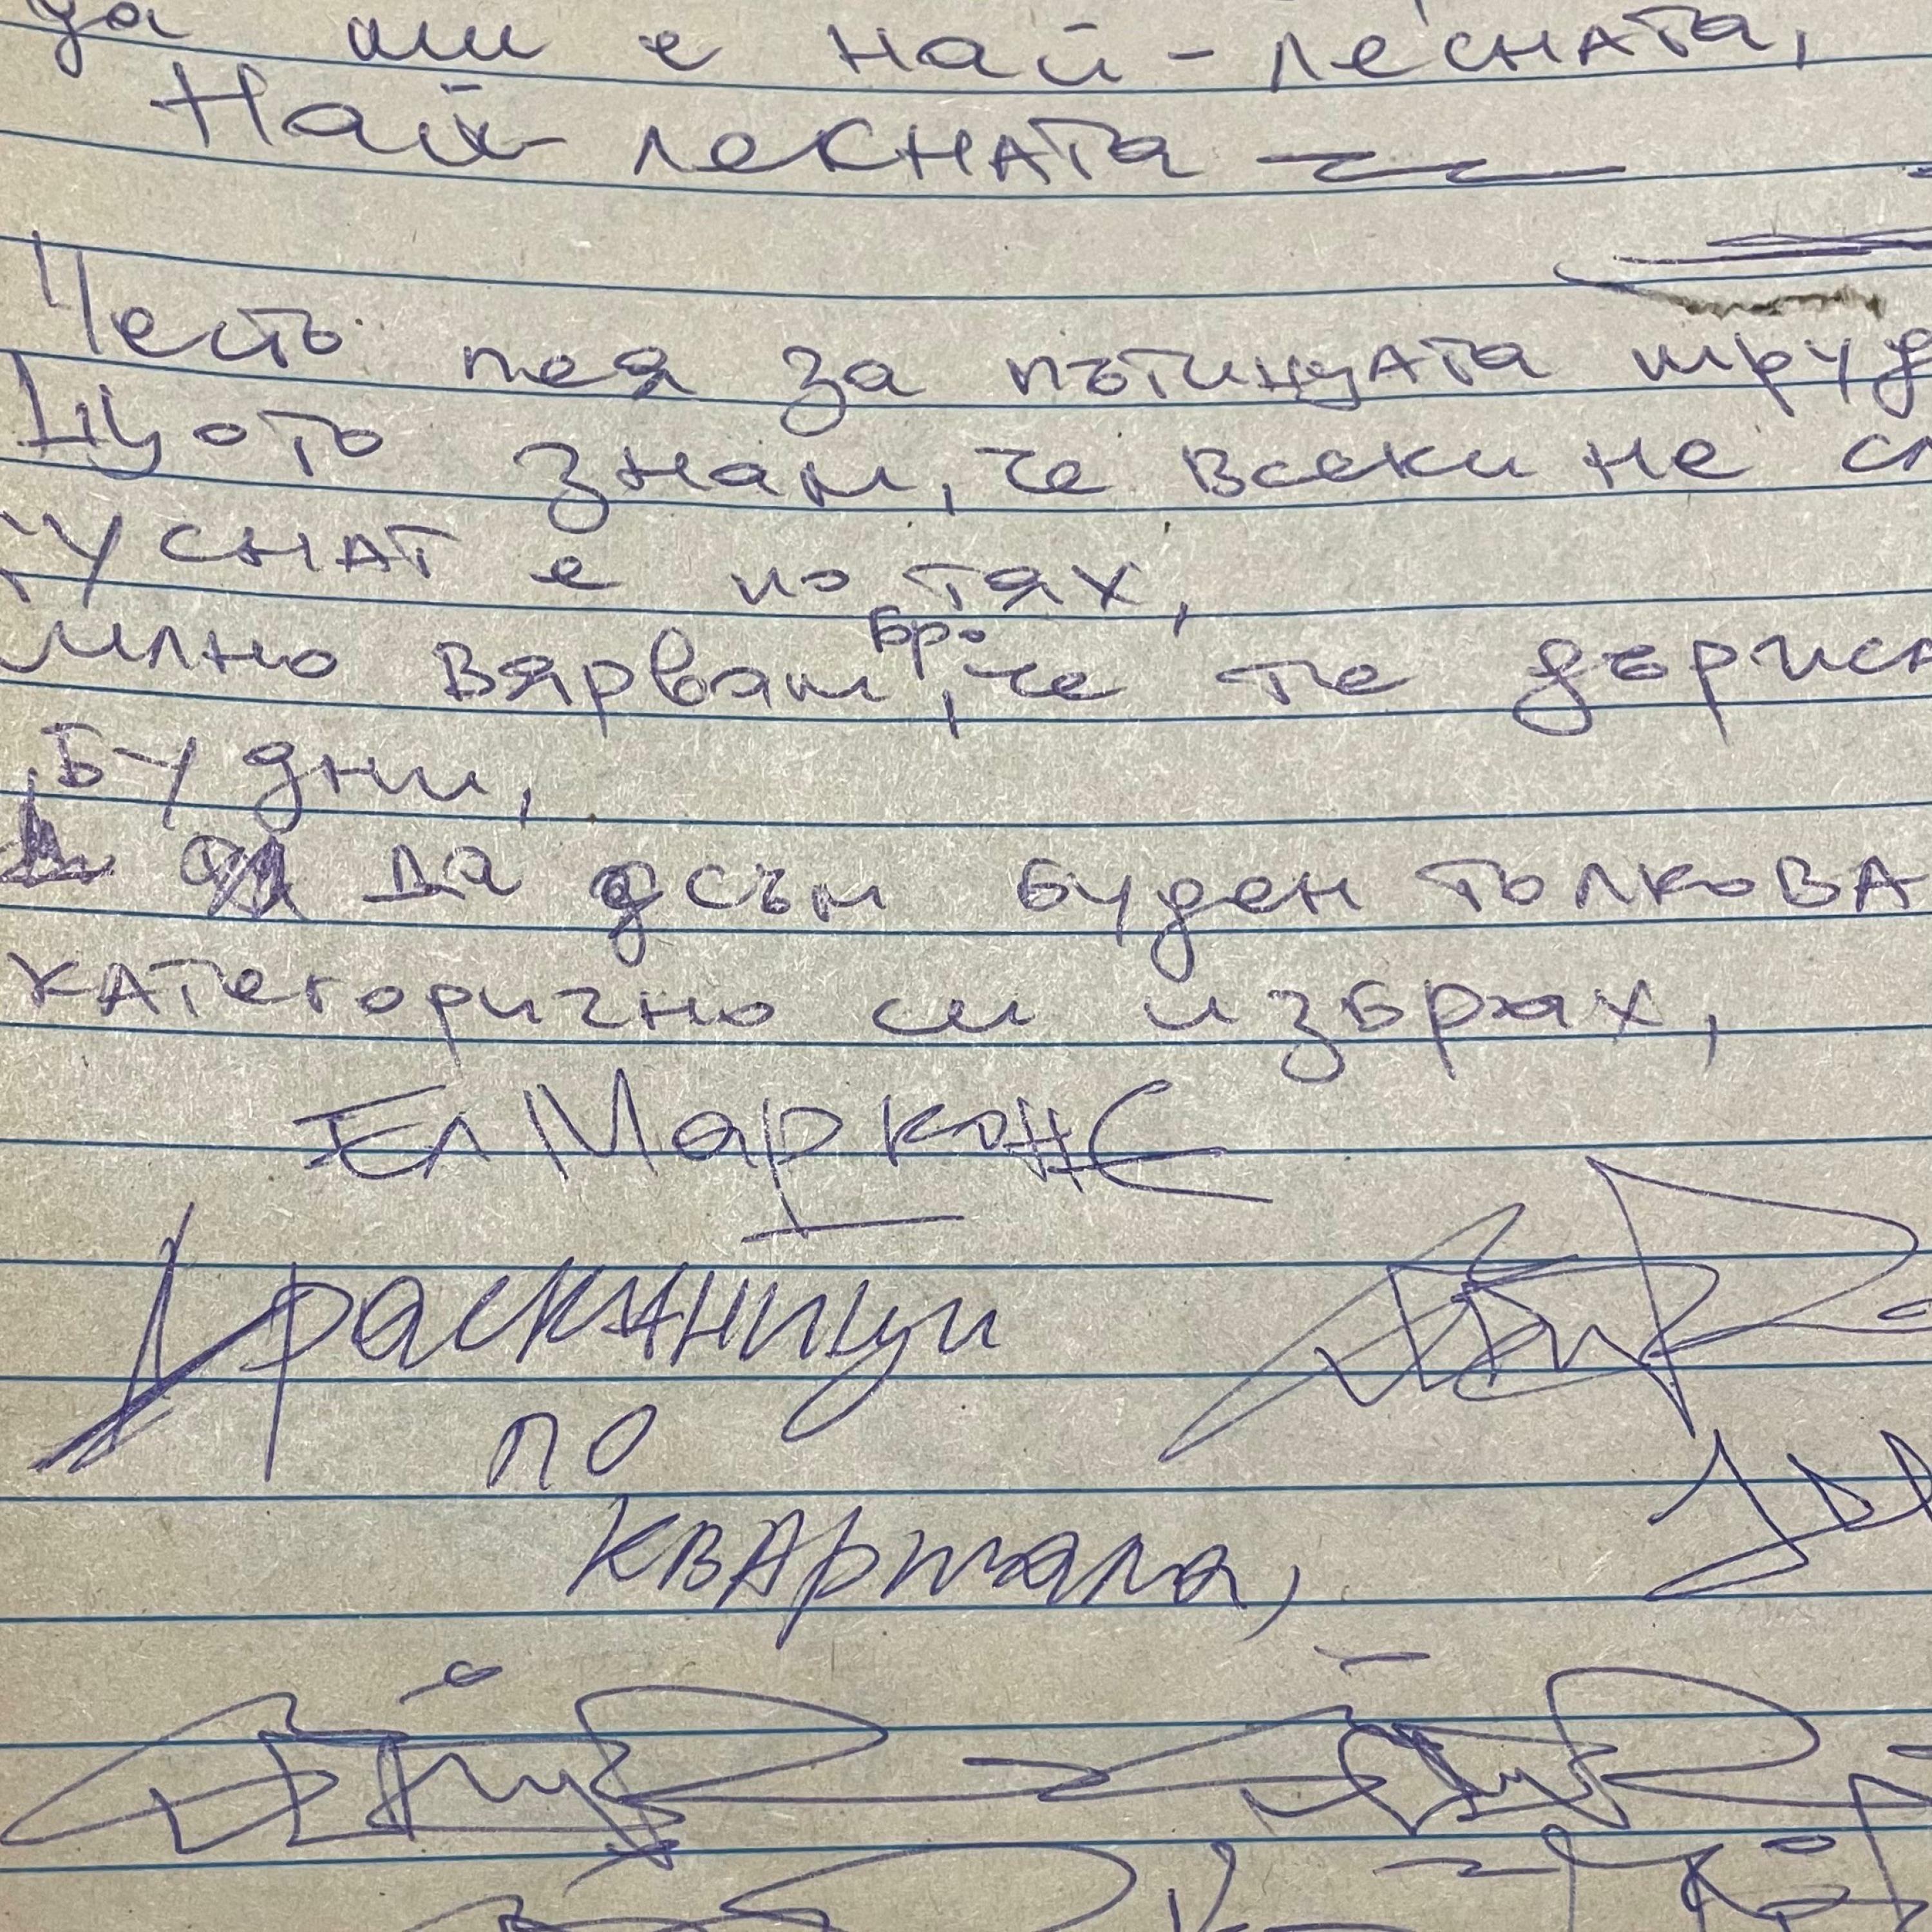 да ми е най-лесната,
Най-лекната
Често пея за пътищата труд
Щото знам, че всеки не сл
куснат е по тях,
илно вярвам бро, че те държа
Будни,
Да съм буден толкова
категорично си избрах,
Ел Марконс
Драсканици
по
квартала,